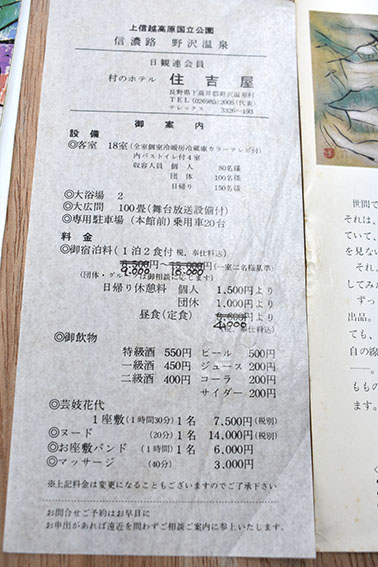 上信越高原国立公園
信濃路 野沢温泉
日観連会員
村のホテル 住吉屋
長野県下高井郡野沢温泉村
TEL (026985) 2005 (代表)
テレックス 3326-493
御案内
設備
◎客室 18室 (全室個室冷暖房冷蔵庫カラーテレビ付)
内バストイレ付4室
収容人員 個人 80名様
団体 100名様
日帰り 150名様
◎大浴場 2
◎大広間 100畳 (舞台放送設備付)
◎専用駐車場 (本館前) 乗用車20台
料金
◎御宿泊料 (1泊2食付 税、奉仕料込)
9,000 18,000 (一室二名様基準)
(団体・グループは御相談に応じます)
日帰り休憩料 個人 1,500円より
団体 1,000円より
昼食(定食) 円より
(税、奉仕料込)
◎御飲物
特級酒 550円 ビール 500円
一級酒 450円 ジュース 200円
二級酒 400円 コーラ 200円
サイダー 200円
◎芸妓花代
1座敷 (1時間30分) 1名 7,500円 (税別)
◎ヌード (20分) 1名 14,000円 (税別)
◎お座敷バンド (1時間) 1名 6,000円
◎マッサージ (40分) 3,000円
※上記料金は変更になることもございますのでご了承下さい
お問合せご予約はお早目に
お申出があれば遠近を問わずご相談ご案内に参上いたします。
世間で
それは、
ていて、
を見ない
それ
してみた
ずっ
出品。
ても、
自の線
ーー。
ももの
ます。